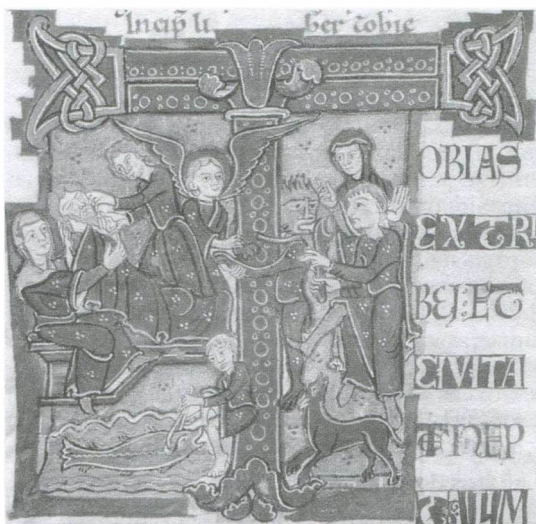 Incip li ber tobie
T
OBIAS
EX TRI
BU: ET
CIVITA
TE NEP
TALIM